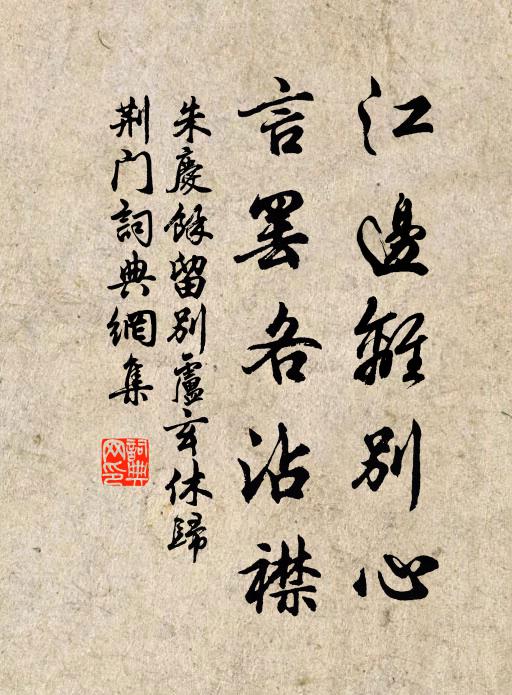 江邊離別心
言罷各沾襟
朱慶餘留別盧玄休歸
荆门詞典網集
詞典网印